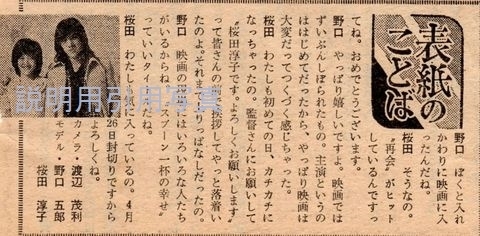 表紙の
ことば
野口　ぼくと入れ
かわりに映画に入
ったんだね。
桜田　そうなの。
“再会”がヒット
しているんですっ
てね。おめでとうございます。
野口　やっぱり嬉しいですよ。映画では
ずいぶんしぼられたもの。主演というの
ははじめてだったから、やっぱり映画は
大変だってつくづく感じちゃった。
桜田　わたしも初めての日、カチカチに
なっちゃったの。監督さんにお願いして
“桜田淳子です。よろしくお願いします”
って皆さんの前で挨拶してやっと落着い
たのよ。それまで りっぱなしだったの。
野口　映画の にはいろいろな人たち
がいるからね。“スプーン一杯の幸せ”
っていいタイトルだね。
桜田　わたしも気に入っているの。4月
26日封切りですから
よろしくね。
カメラ・渡辺　茂利
モデル・野口　五郎
桜田　淳子
説明用引用写真